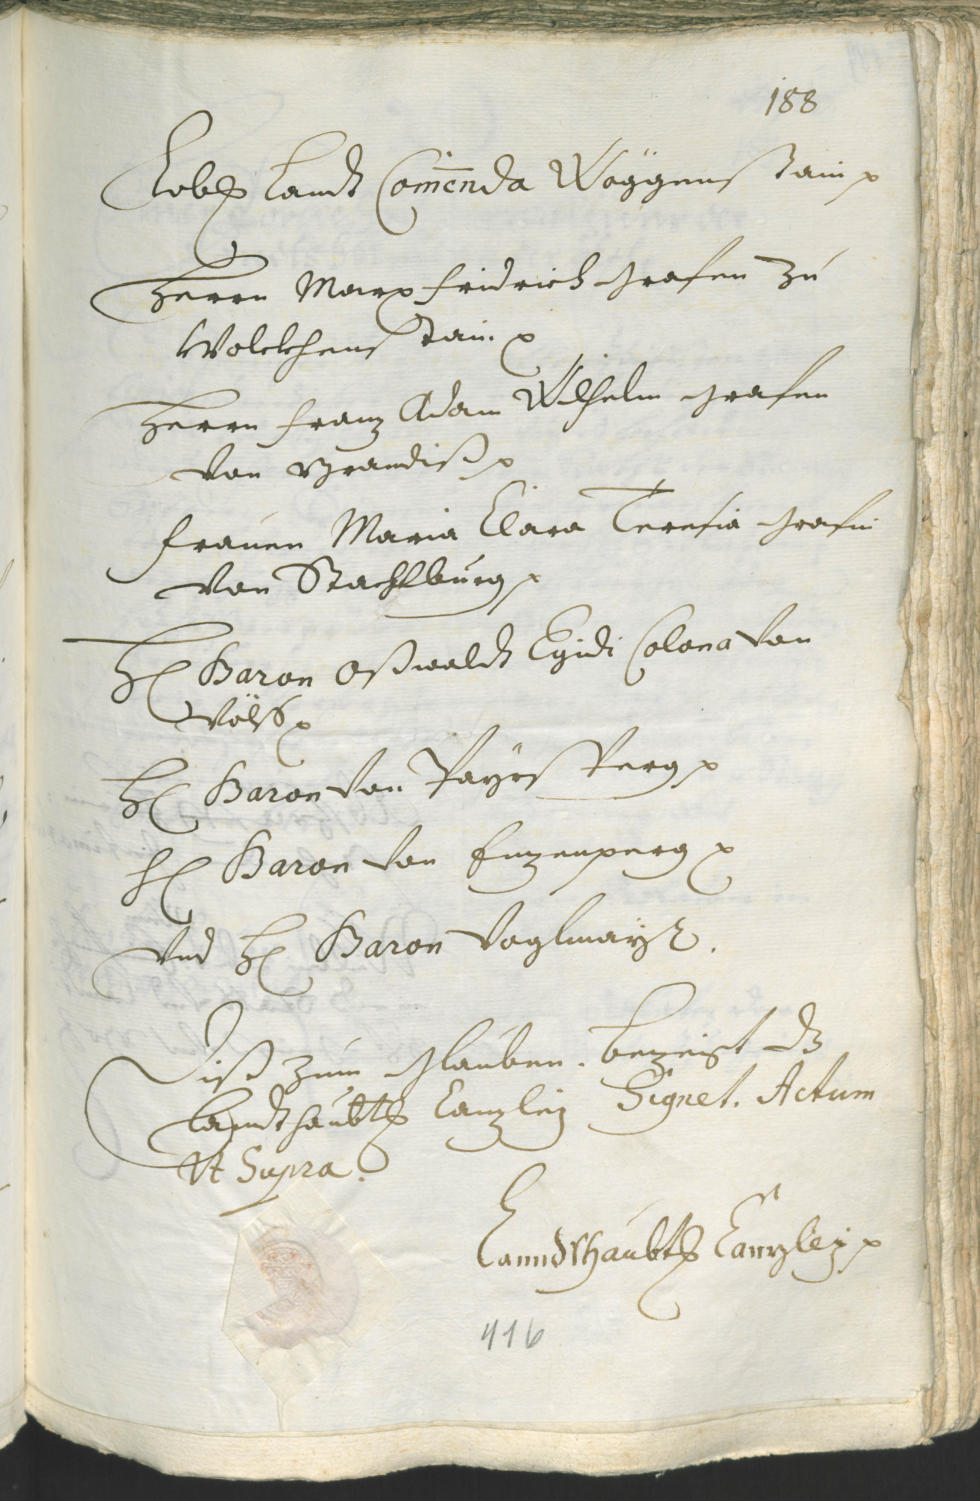 188
Lobl: Landt Com̄enda Wöggenstain p
Herrn Marx Fridrich Grafen zu
Wolckhenstain. p
Herrn Franz Adam Wilhelm Grafen
von Brandiß p
Frauen Maria Clara Teresia Grafin
von Stachlburg p
H: Baron Oßwaldt Egidi Colona von
Völß p
H: Baron von Payrsperg p
H: Baron von Enzenperg p
Vnd H: Baron Voglmayr.
Diß zum Glauben. bezeigt dz
Landtshaubt: Canzleÿ Signet. Actum
Vt Supra.
Lanndtshaubt: Canzleÿ p
416